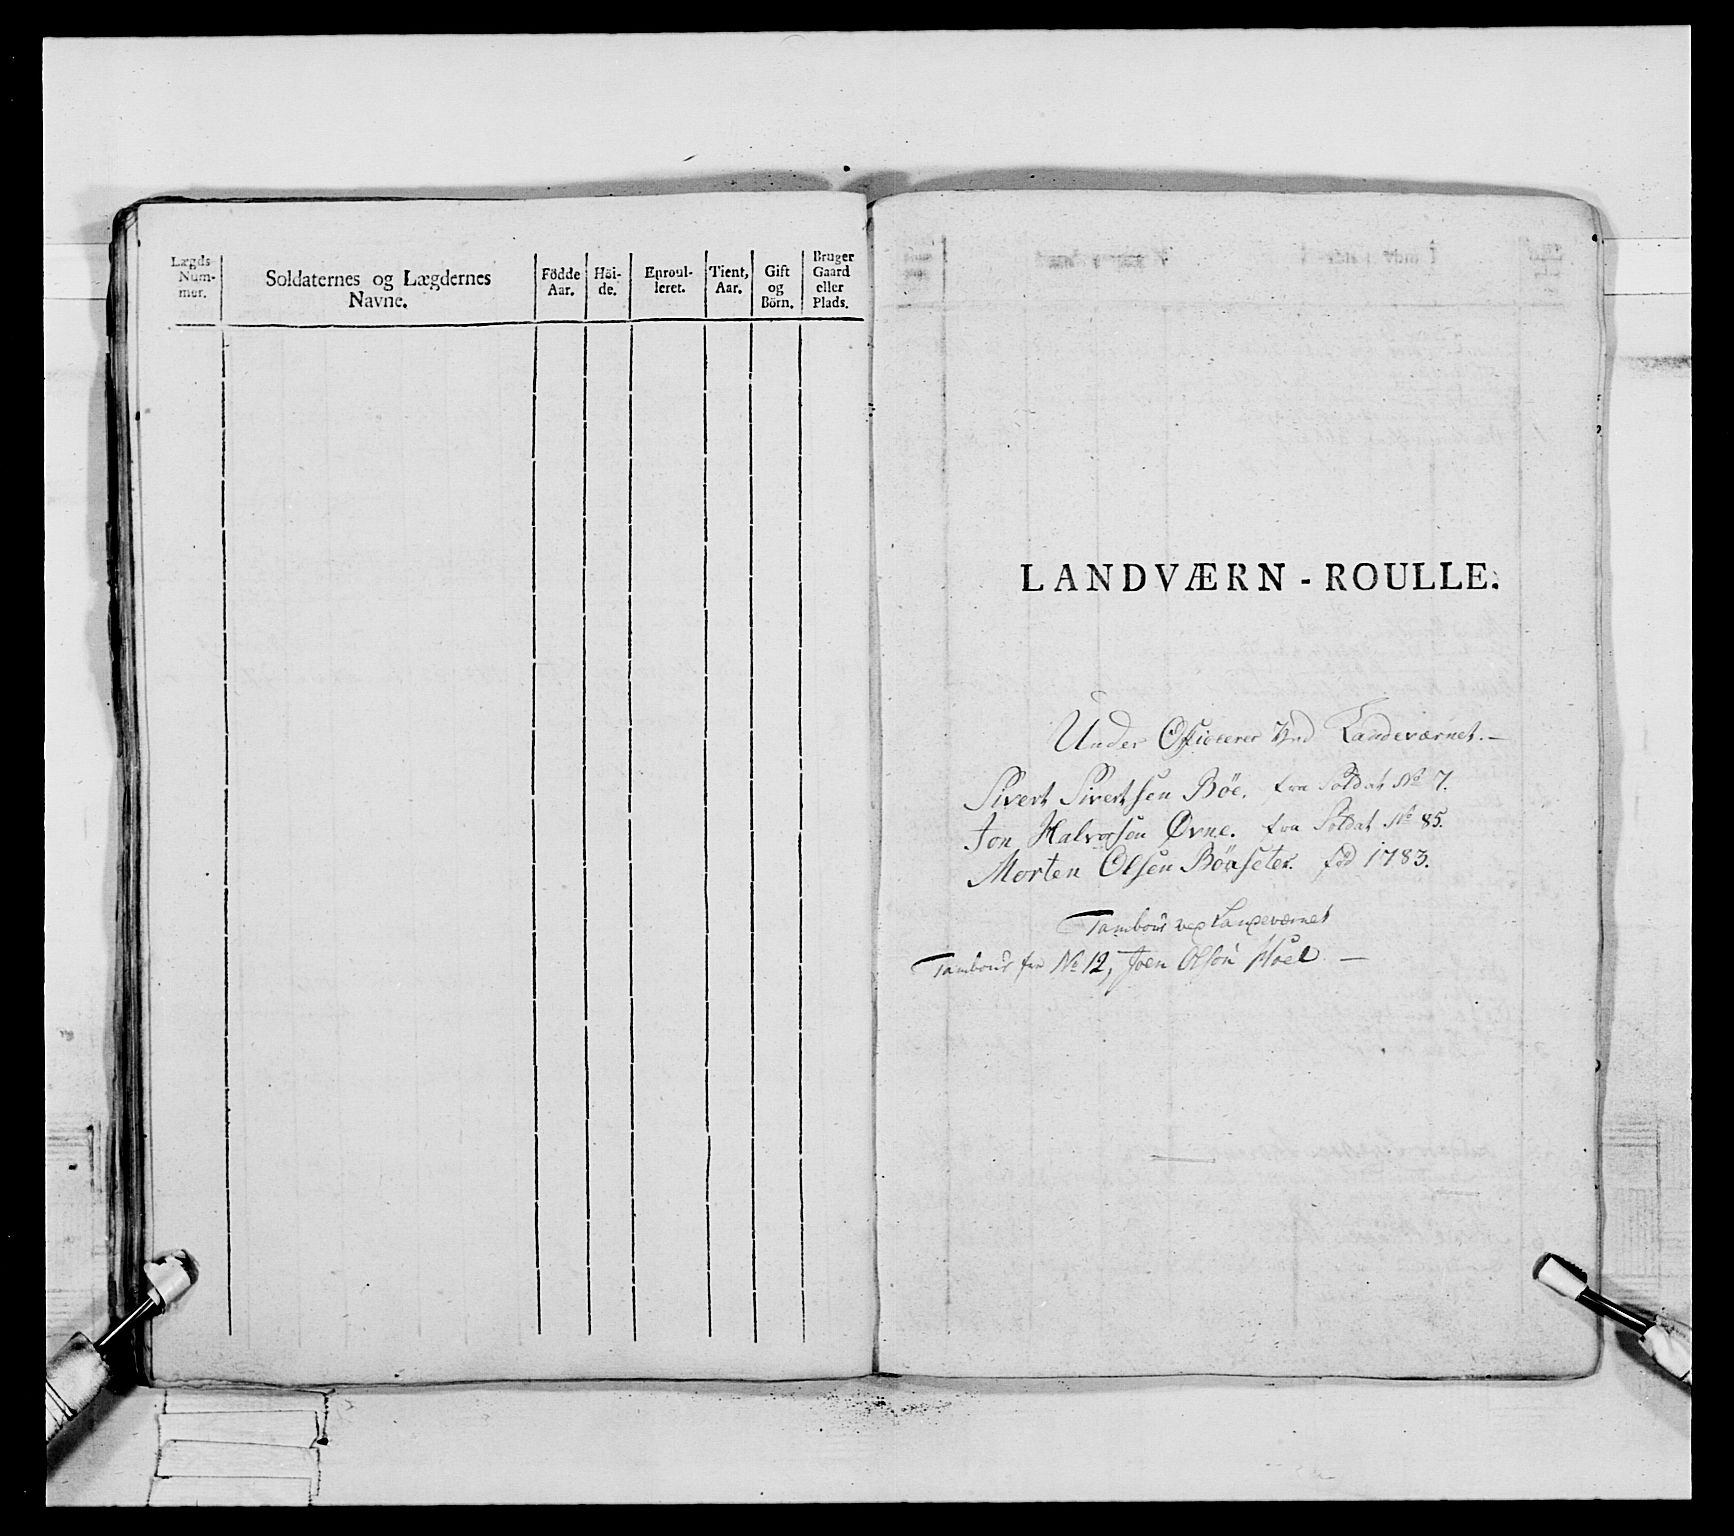 Lægds-
Num-
mer.
Soldaternes og Lægdernes
Navne.
Födde
Aar.
Höi-
de.
Enroul-
leret.
Tient,
Aar.
Gift
og
Börn.
Bruger
Gaard
eller
Plads.
LANDVÆRN - ROULLE.
Under Officerer Ved Landeværnet. —
Sivert Sivertsen Böe. fra Soldat No 7.
Jon Halvorsen Øvne. fra Soldat No 85.
Morten Olsen Böeseter. föd 1783.
Tambour ved Landeværnet
Tambour fra No 12, Joen Olsön Moel —